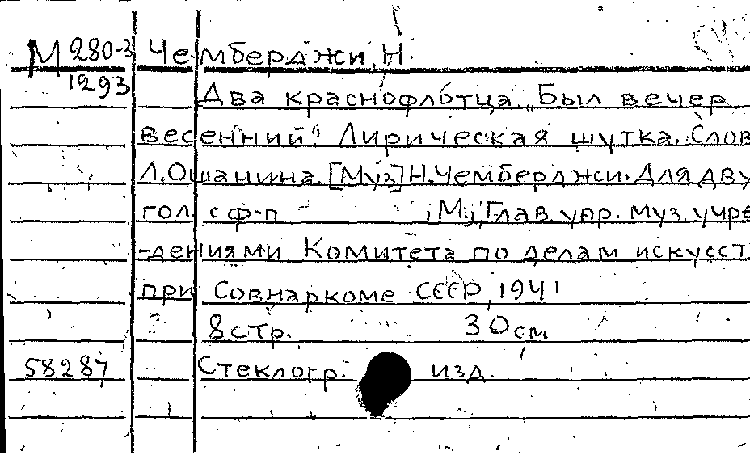 М 280-3 Чемберджи, Н.
1293
Два краснофлотца. „Был вечер
весенний". Лирическая шутка. Слов
Л. Ошанина. [Муз] Н. Чемберджи. Для дву
гол. с ф-п М., Глав. упр. муз. учре
-дениями Комитета по делам искусст
при Совнаркоме СССР, 1941
8 стр. 30 см.
58287 Стеклогр. изд.